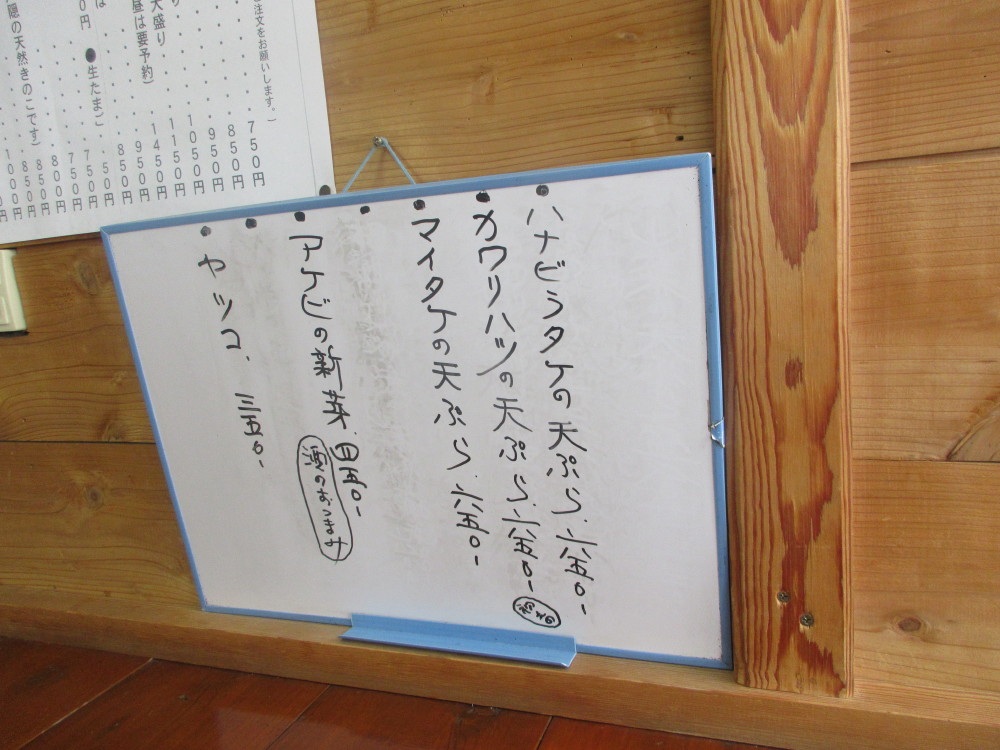 ●ハナビラタケの天ぷら、六五〇-
●カワリハツの天ぷら、六五〇-
●マイタケの天ぷら、六五〇-
●
●アケビの新芽、四五〇-
のおつまみ
●
●ヤッコ、三五〇-
注文をお願いします。)
750円
850円
950円
1050円
1150円
大盛り 1450円
昼は要予約) 950円
850円
●生たまご 50円
750円
750円
800円
850円
隠の天然きのこです) 850円
1000円